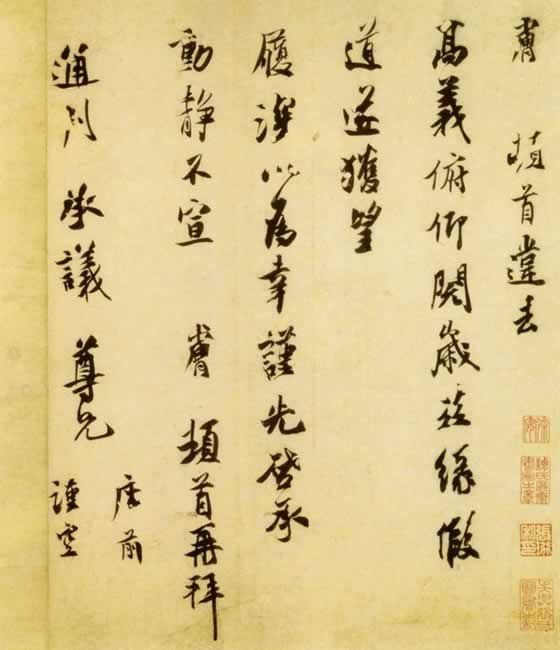 膚 頓首違去
高義俯仰閱歲茲緣假
道遂獲望
履深以為幸謹先啓承
動靜不宣 膚 頓首再拜
通判 承議 尊兄
座前
謹空